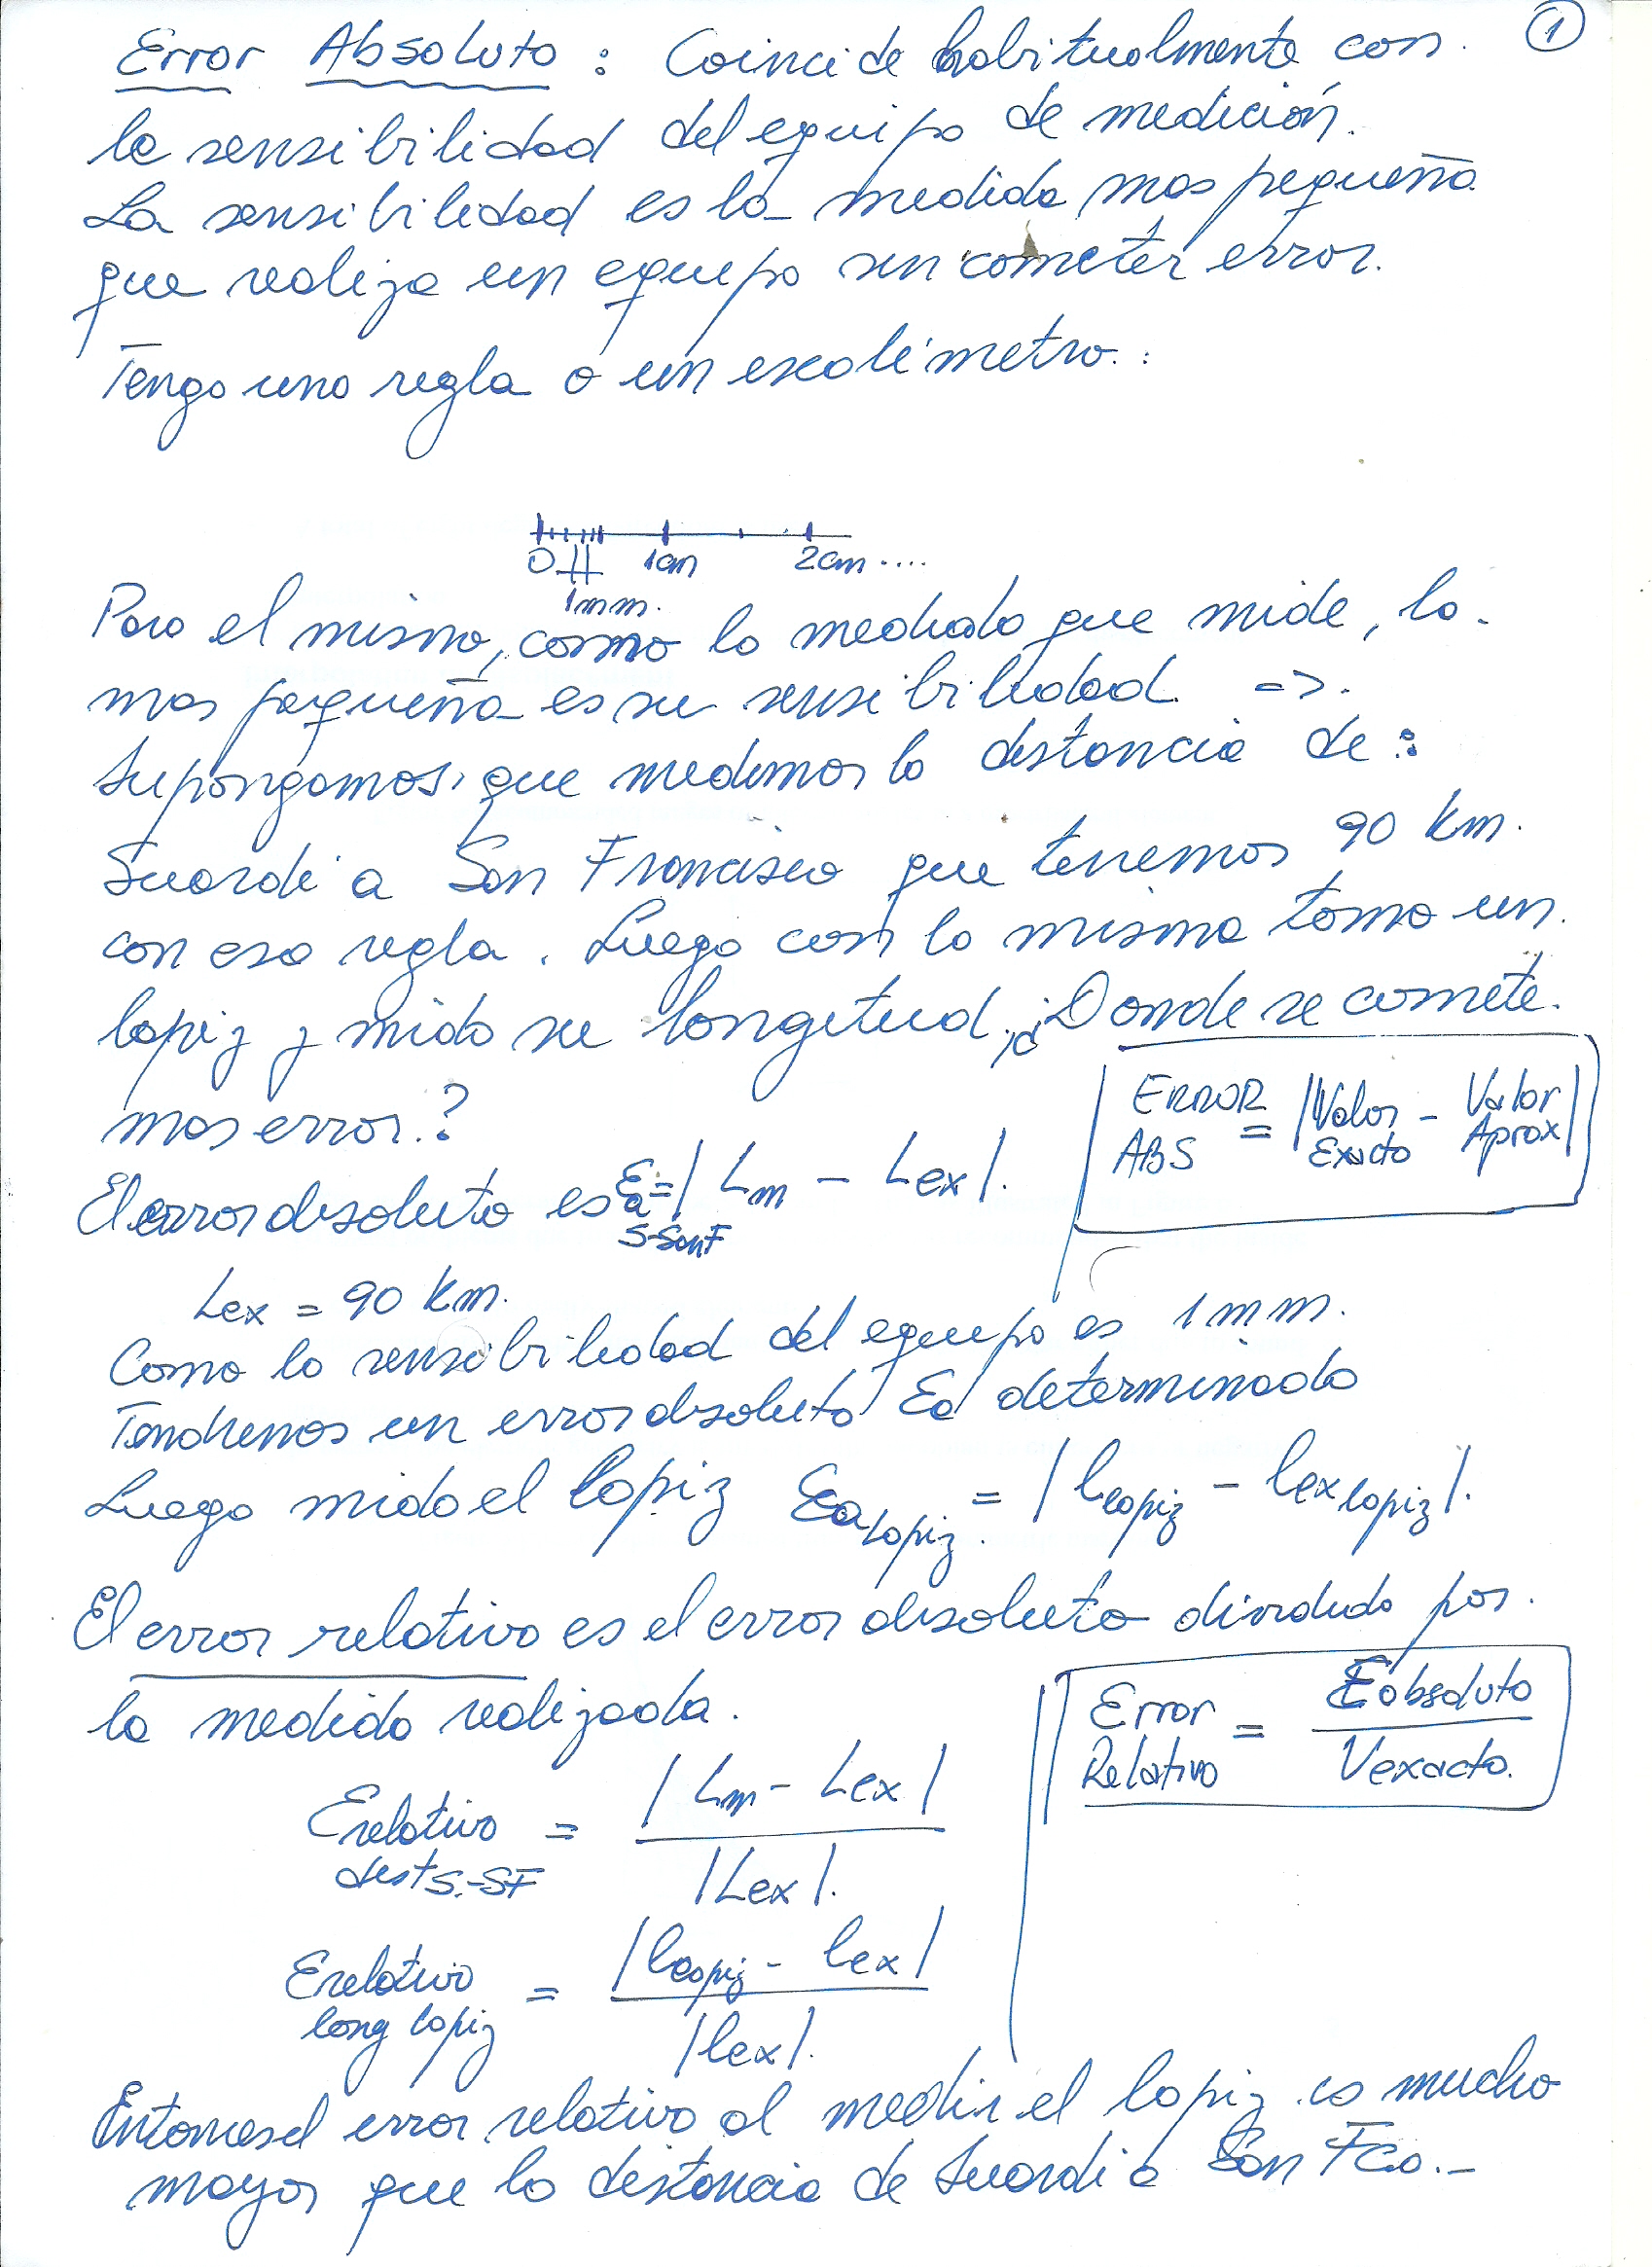 ①
Error Absoluto : Coincide habitualmente con
la sensibilidad del equipo de medición.
La sensibilidad es la medida mas pequeña
que realiza un equipo sin cometer error.
Tengo una regla o un escalímetro. :
0 1cm 2cm ....
1mm.
Para el mismo, como la medida que mide, la
mas pequeña es su sensibilidad =>.
Supongamos que medimos la distancia de :
Suardi a San Francisco que tenemos 90 km.
con esa regla. Luego con la misma tomo un
lapiz y mido su longitud, ¿Donde se comete
mas error.?
ERROR ABS = |Valor Exacto - Valor Aprox|
El error absoluto es Ea S-SanF = | Lm - Lex |.
Lex = 90 km.
Como la sensibilidad del equipo es 1 mm.
Tendremos un error absoluto Ea determinado
Luego mido el lapiz Ea Lapiz = | l lapiz - lex lapiz |.
El error relativo es el error absoluto dividido por.
la medida realizada.
Error Relativo = Eabsoluto / Vexacto.
Erelativo dist S.-SF = | Lm - Lex | / | Lex |.
Erelativo long lapiz = | l lapiz - lex | / | lex |.
Entonces el error relativo al medir el lapiz es mucho
mayor que la distancia de Suardi a San Fco.-